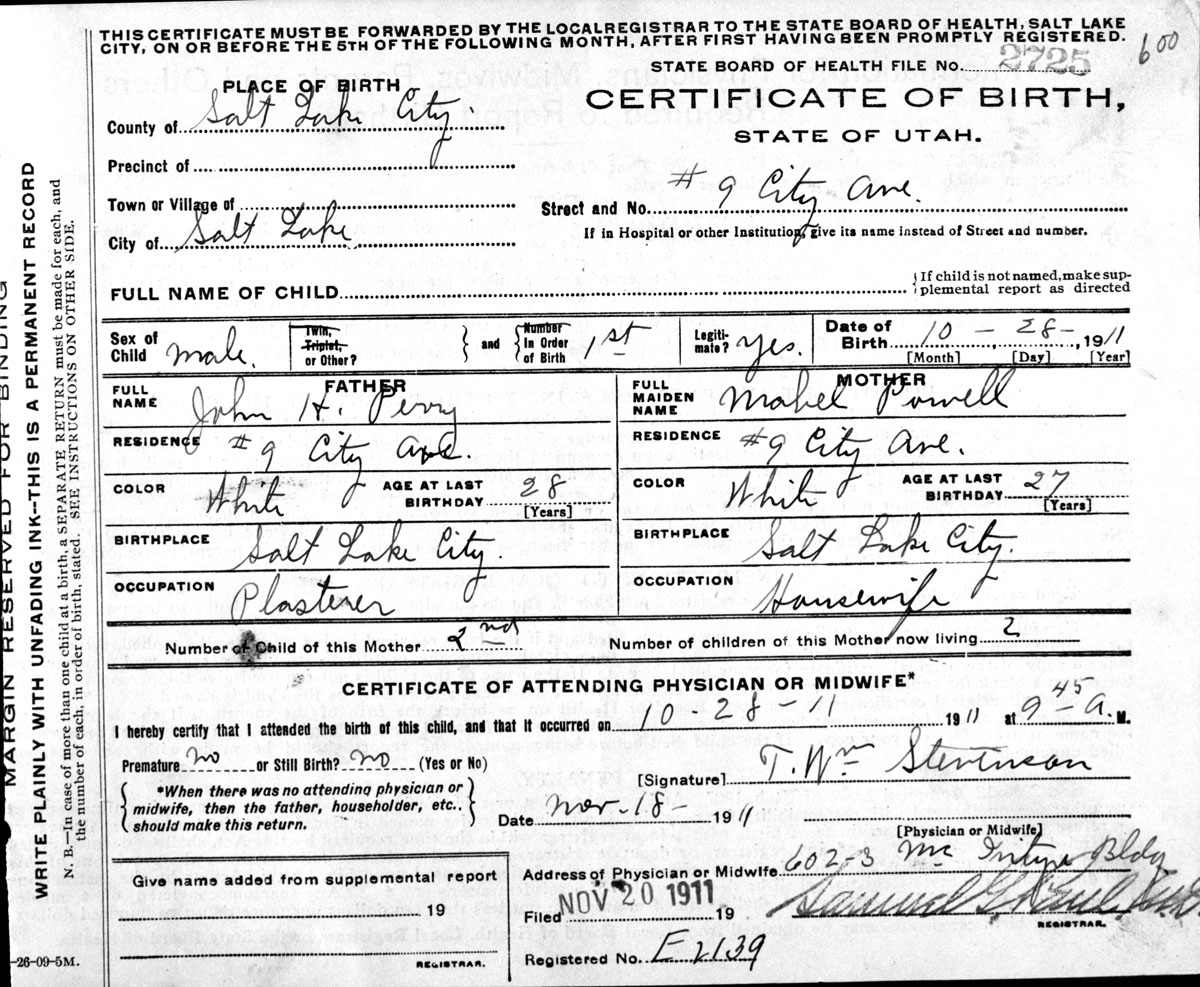 THIS CERTIFICATE MUST BE FORWARDED BY THE LOCALREGISTRAR TO THE STATE BOARD OF HEALTH, SALT LAKE
CITY, ON OR BEFORE THE 5TH OF THE FOLLOWING MONTH, AFTER FIRST HAVING BEEN PROMPTLY REGISTERED.
600
STATE BOARD OF HEALTH FILE NO. 2725
PLACE OF BIRTH
CERTIFICATE OF BIRTH,
STATE OF UTAH.
County of Salt Lake City
Precinct of
Town or Village of
Street and No. #9 City Ave.
City of Salt Lake
If in Hospital or other Institution, give its name instead of Street and number.
FULL NAME OF CHILD
If child is not named, make sup-
plemental report as directed
Sex of Child male.
Twin, Triplet, or Other?
and
Number In Order of Birth 1st
Legiti-mate? yes.
Date of Birth 10 - 28 - 1911
[Month] [Day] [Year]
FATHER
FULL NAME John H. Perry
RESIDENCE #9 City Ave.
COLOR White AGE AT LAST BIRTHDAY 28 [Years]
BIRTHPLACE Salt Lake City.
OCCUPATION Plasterer
MOTHER
FULL MAIDEN NAME Mabel Powell
RESIDENCE #9 City Ave.
COLOR White AGE AT LAST BIRTHDAY 27 [Years]
BIRTHPLACE Salt Lake City.
OCCUPATION Housewife
Number of Child of this Mother 2nd
Number of children of this Mother now living 2
CERTIFICATE OF ATTENDING PHYSICIAN OR MIDWIFE*
I hereby certify that I attended the birth of this child, and that it occurred on 10-28-11 1911 at 9 45 a M.
Premature no or Still Birth? no (Yes or No)
[Signature] T. Wm Stevenson
*When there was no attending physician or
midwife, then the father, householder, etc..
should make this return.
Date Nov-18- 1911
[Physician or Midwife]
Give name added from supplemental report
19
REGISTRAR.
Address of Physician or Midwife 602-3 Mc Intyre Bldg
Filed NOV 20 1911 19
Samuel G. Paul
REGISTRAR.
Registered No. E2139
MARGIN RESERVED FOR BINDING
WRITE PLAINLY WITH UNFADING INK--THIS IS A PERMANENT RECORD
N. B.—In case of more than one child at a birth, a SEPARATE RETURN must be made for each, and
the number of each, in order of birth, stated. SEE INSTRUCTIONS ON OTHER SIDE.
-26-09-5M.